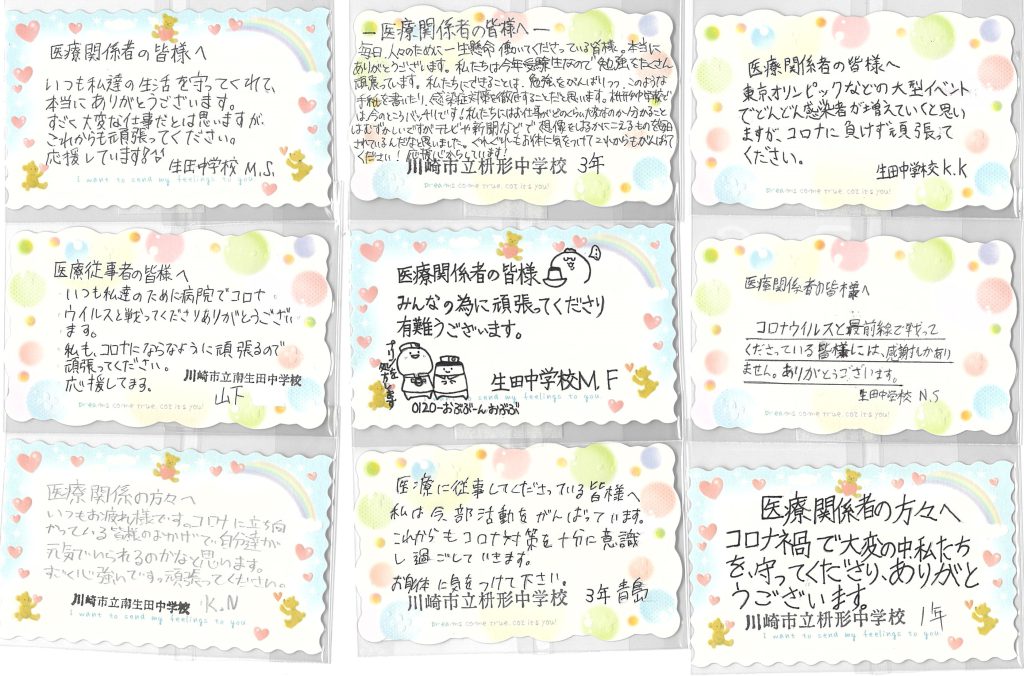 医療関係者の皆様へ
いつも私達の生活を守ってくれて、
本当にありがとうございます。
すごく大変な仕事だとは思いますが、
これからも頑張ってください。
応援しています!
生田中学校 M.S.
I want to send my feelings to you
ー医療関係者の皆様へー
毎日、人々のために一生懸命働いてくださっている皆様。本当に
ありがとうございます。私たちは今年受験生なので勉強をたくさん
頑張っています。私たちにできることは、勉強をがんばりつつ、このような
手紙を書いたり、感染症対策を徹底することだと思います。枡形中学校で
は今のところバッチリです!私たちにはお仕事がどのくらい大変なのか分かること
はむずかしいですがテレビや新聞などで想像をはるかにこえるものを
されているんだなと思いました。くれぐれもお体に気をつけてこれからもがんばって
ください!応援しています!
川崎市立枡形中学校 3年
Dreams come true, coz it's you!
医療関係者の皆様へ
東京オリンピックなどの大型イベント
でどんどん感染者が増えていくと思い
ますが、コロナに負けず頑張って
ください。
生田中学校 K.K
Dreams come true, coz it's you!
医療従事者の皆様へ
いつも私達のために病院でコロナ
ウイルスと戦ってくださりありがとうござい
ます。
私も、コロナにならなように頑張るので
頑張ってください。
応援してます。
川崎市立南生田中学校
山下
Dreams come true, coz it's you!
医療関係者の皆様
みんなの為に頑張ってくださり
有難うございます。
プリンを処方します
生田中学校 M.F
send my feelings to you
0120-おぶぶーんおぶぶ
医療関係者の皆様へ
コロナウイルスと最前線で戦って
くださっている皆様には、感謝しかあり
ません。ありがとうございます。
生田中学校 N.S
Dreams come true, coz it's you!
医療関係の方々へ
いつもお疲れ様です。コロナに立ち向
かっている皆様のおかげで、自分達が
元気でいられるのかなと思います。
すごく心強いです。頑張ってください。
川崎市立南生田中学校 K.N
I want to send my feelings to you
医療に従事してくださっている皆様へ
私は今部活動をがんばっています。
これからもコロナ対策を十分に意識
し過ごしていきます。
お身体に気をつけて下さい。
川崎市立枡形中学校 3年 青島
Dreams come true, coz it's you!
医療関係者の方々へ
コロナ禍で大変の中私たち
を、守ってくださり、ありがと
うございます。
川崎市立枡形中学校 1年
I want to send my feelings to you